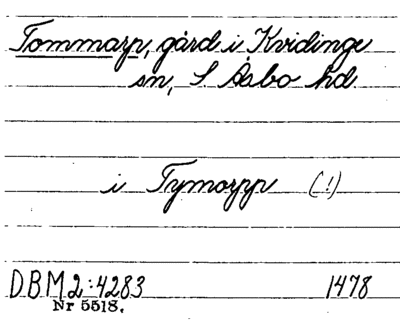 Tommarp, gård i Kvidinge
sn, S Åsbo hd
i Tymarpp (!)
DBM 2:4283 1478
Nr 5518.